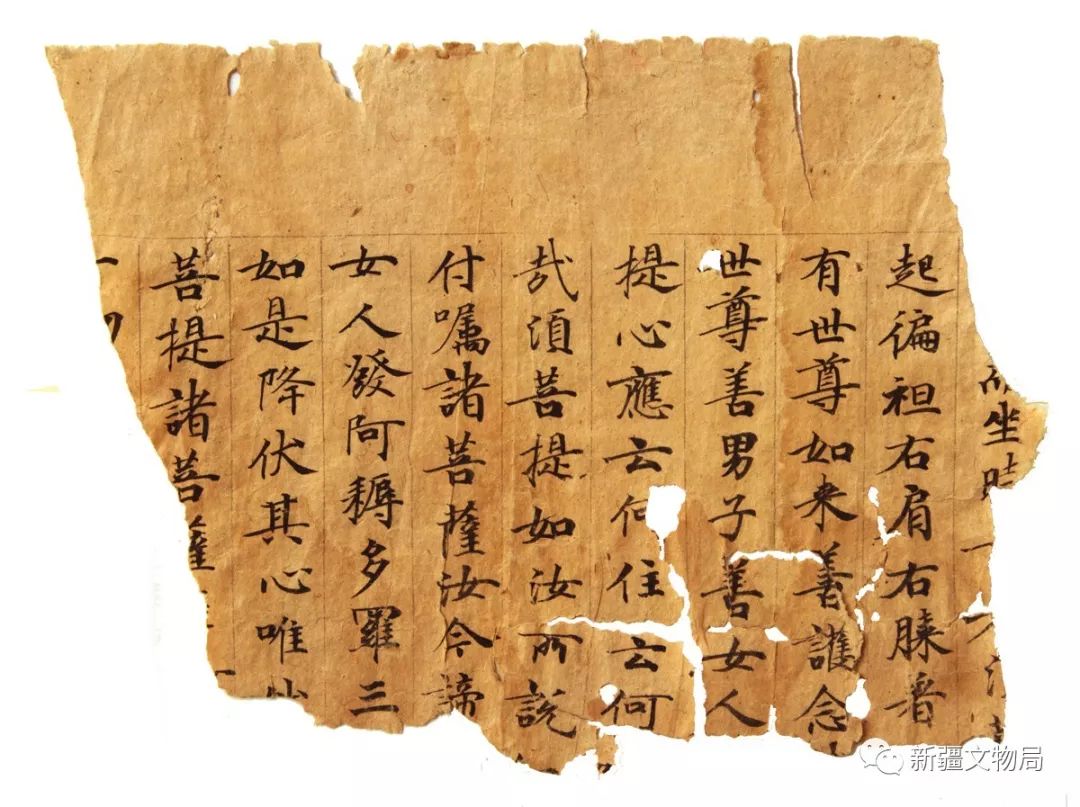 坐時
起徧袒右肩右膝著
有世尊如来善護念
世尊善男子善女人
提心應云何住云何
㢤湏菩提如汝所說
付嘱諸菩薩汝今諦
女人發阿耨多羅三
如是降伏其心唯
菩提諸菩薩
一切
新疆文物局